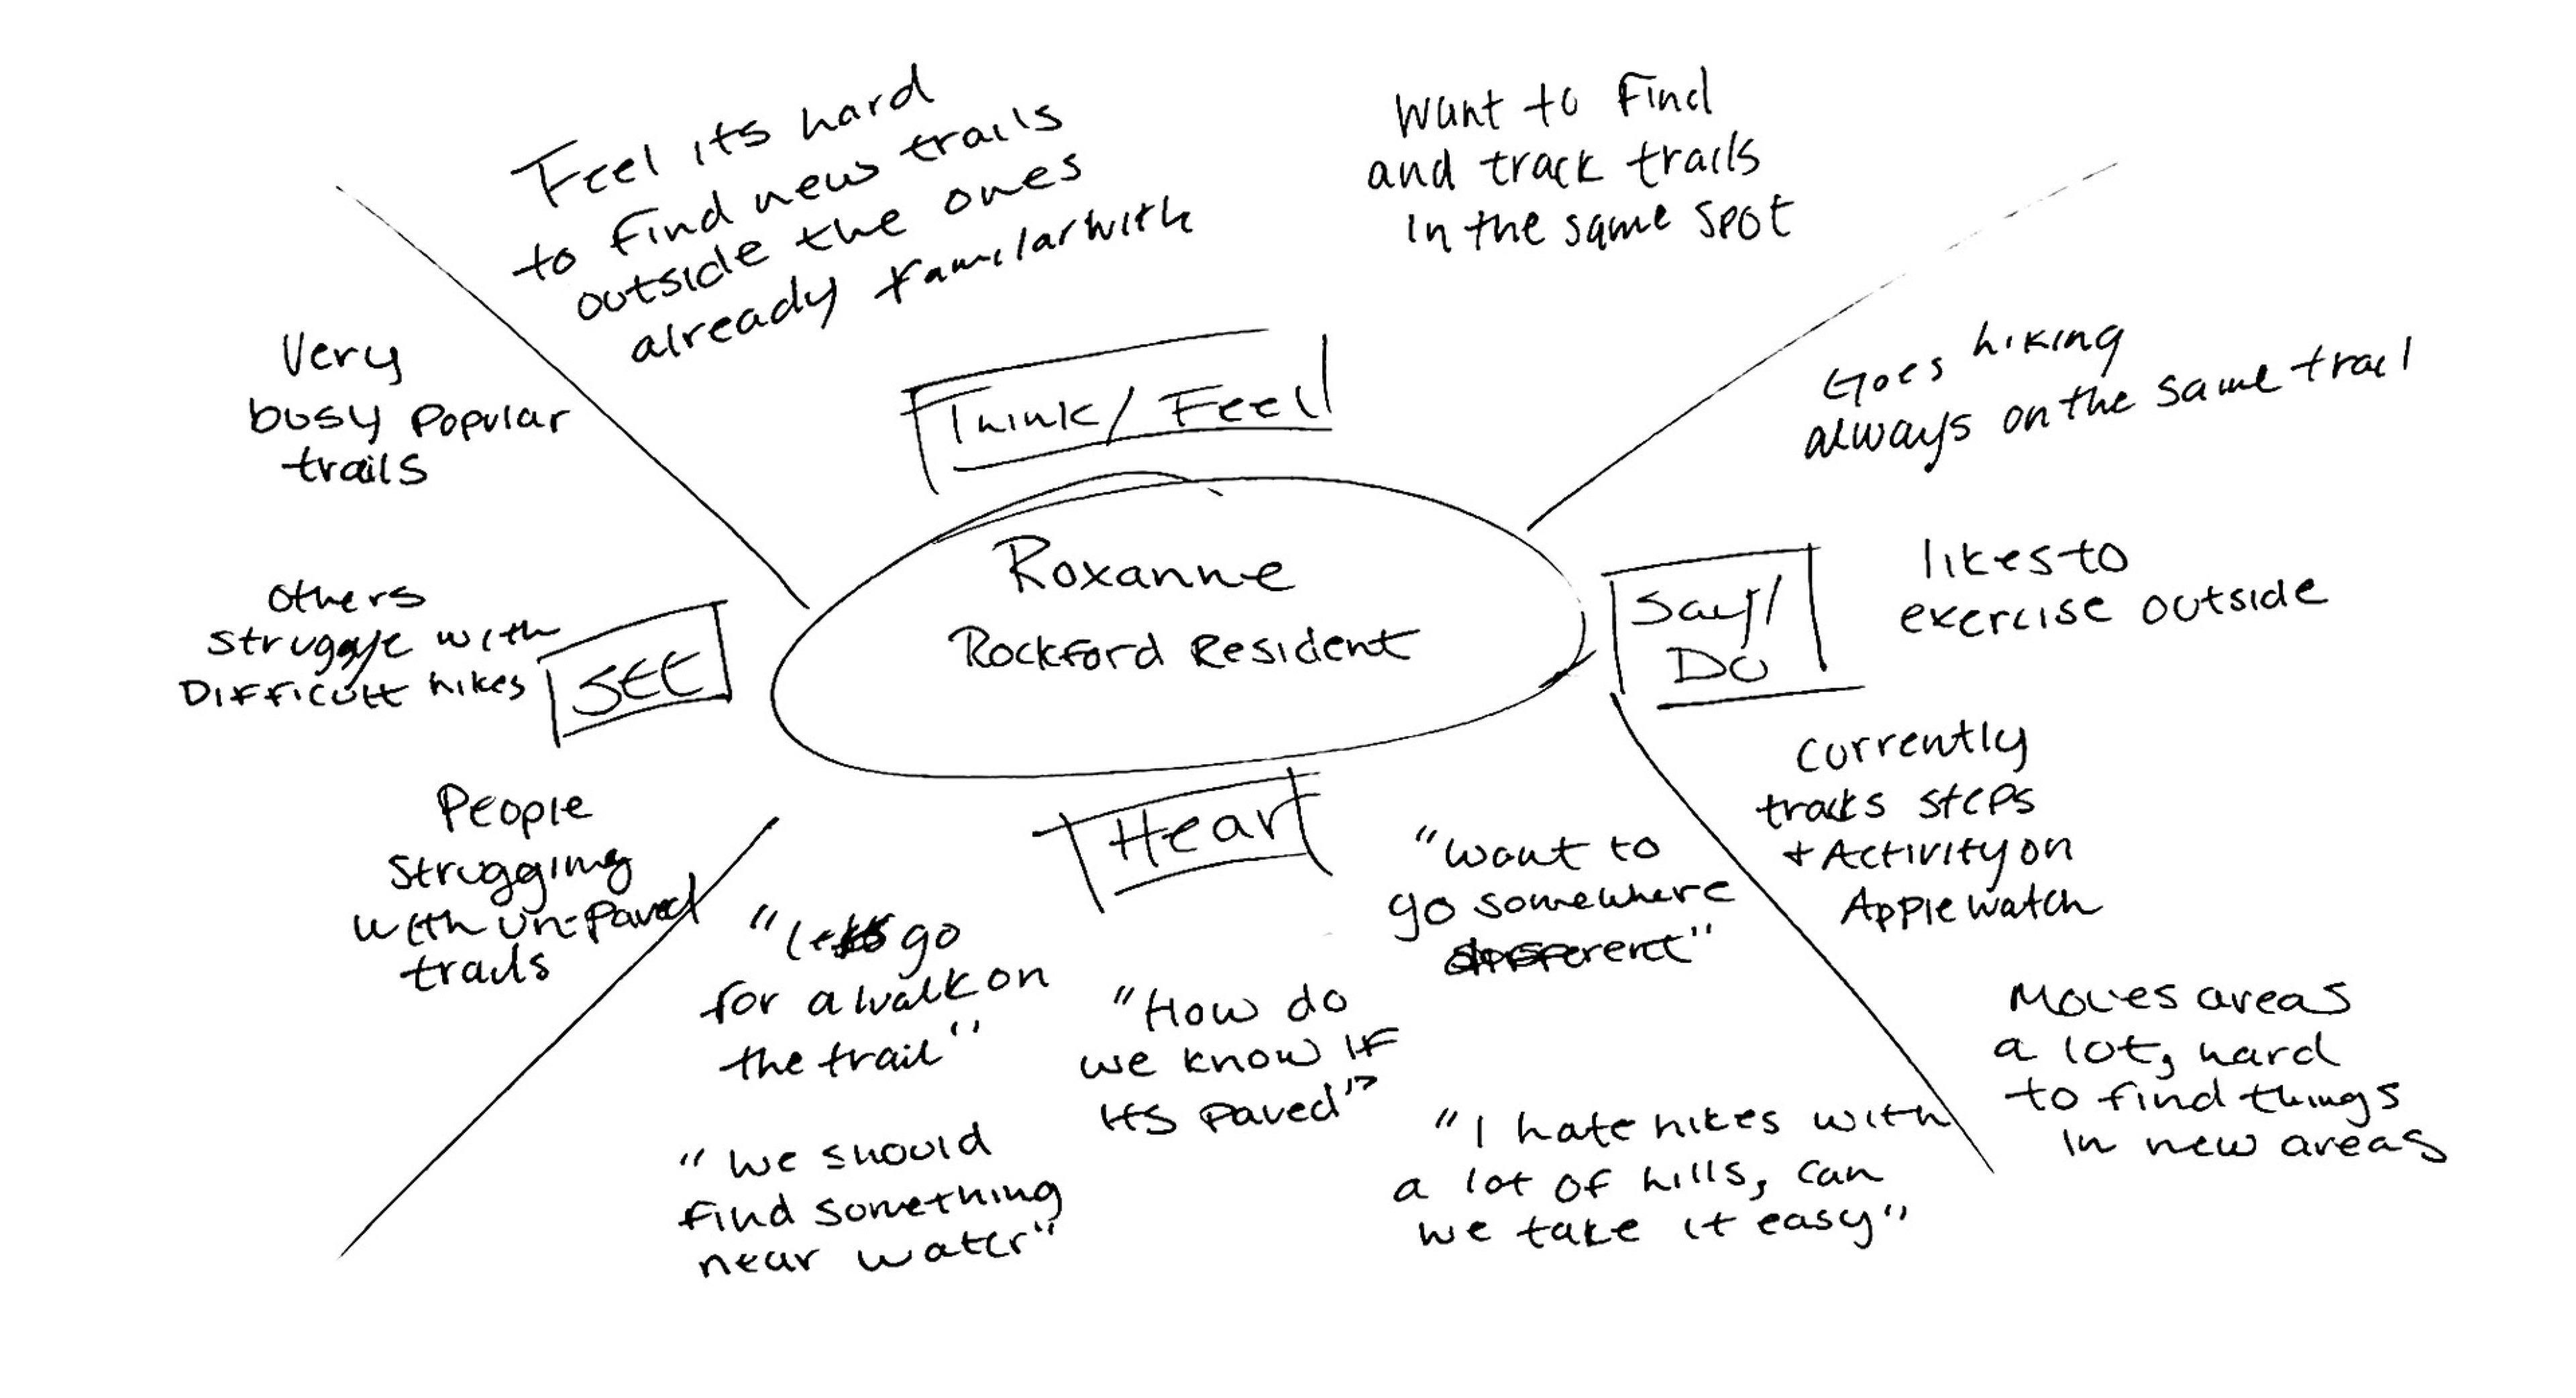 Feel its hard
to find new trails
outside the ones
already familar with
Want to find
and track trails
in the same spot
Think/Feel
Very
busy popular
trails
Others
struggle with
Difficult hikes
SEE
People
struggling
with un-paved
trails
Roxanne
Rockford Resident
Goes hiking
always on the same trail
Say/
Do
likes to
exercise outside
Currently
tracks steps
+ Activity on
Apple watch
Moves areas
a lot, hard
to find things
in new areas
Hear
"lets go
for a walk on
the trail"
"we should
find something
near water"
"How do
we know if
its paved"?
"want to
go somewhere
different"
"I hate hikes with
a lot of hills, can
we take it easy"